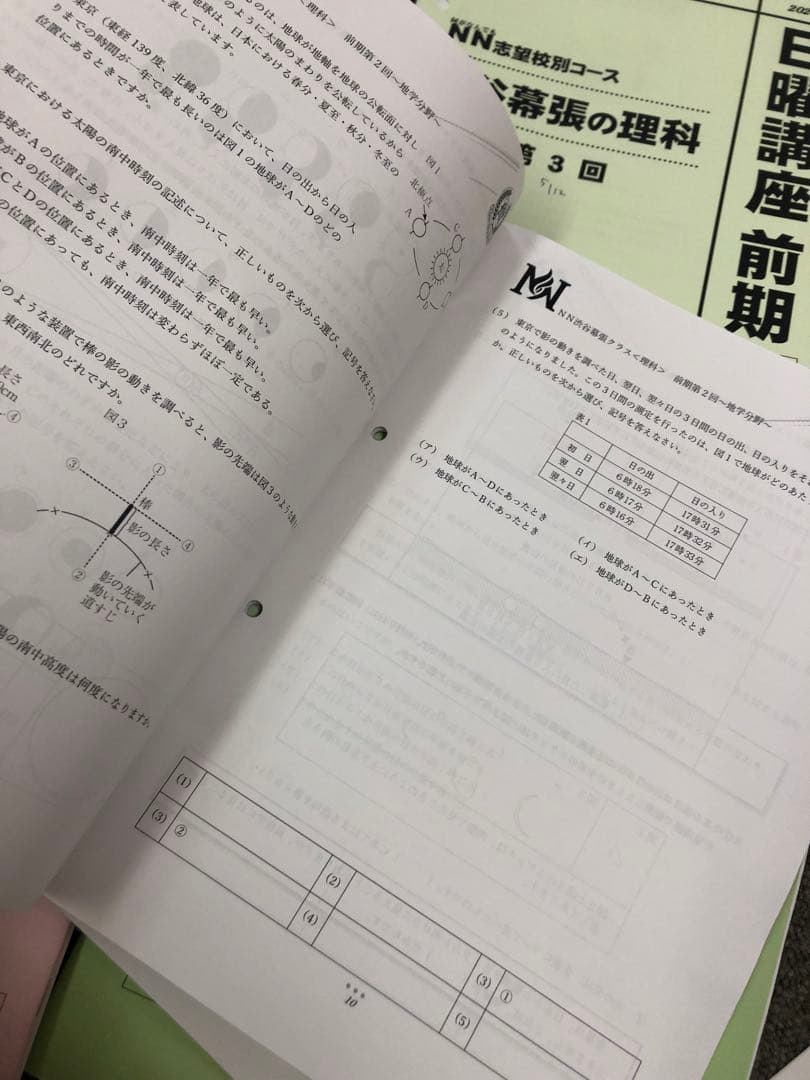 ＜理科＞　前期第２回～地学分野～
のは、地球が地軸を地球の公転面に対し
のように太陽のまわりを公転しているから
地球は、日本における春分・夏至・秋分・冬至の
表しています。
図１
北極点
A
C
D
東京（東経139度、北緯36度）において、日の出から日の入
りまでの時間が一年で最も長いのは図１の地球がA～Dのどの
位置にあるときですか。
東京における太陽の南中時刻の記述について、正しいものを次から選び、記号を答えなさい
地球がAの位置にあるとき、南中時刻は一年で最も早い。
がBの位置にあるとき、南中時刻は一年で最も早い。
CとDの位置にあるとき、南中時刻は一年で最も早い。
の位置にあっても、南中時刻は変わらずほぼ一定である。
のような装置で棒の影の動きを調べると、影の先端は図３のような
東西南北のどれですか。
長さ
0cm
④
図３
①
③
棒
影の長さ
④
②
影の先端が
動いていく
道すじ
陽の南中高度は何度になりますか
NN志望校別コース
谷幕張の理科
第３回
5/12
202
日曜講座 前期
NN渋谷幕張クラス＜理科＞　前期第２回～地学分野～
(５)　東京で影の動きを調べた日、翌日、翌々日の３日間の日の出、日の入りをそ
のようになりました。この３日間の測定を行ったのは、図１で地球がどのあた
か。正しいものを次から選び、記号を答えなさい。
表１
日の出　日の入り
初　日　６時18分　17時31分
翌　日　６時17分　17時32分
翌々日　６時16分　17時33分
(ア)　地球がA～Dにあったとき
(イ)　地球がA～Cにあったとき
(ウ)　地球がC～Bにあったとき
(エ)　地球がD～Bにあったとき
(1)
(2)
(3) ①
(3) ②
(4)
(5)
10